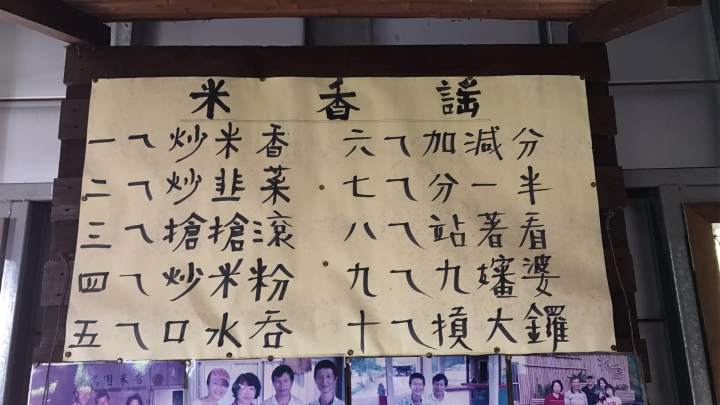 米香謠
一ㄟ炒米香
二ㄟ炒韭菜
三ㄟ搶搶滾
四ㄟ炒米粉
五ㄟ口水吞
六ㄟ加減分
七ㄟ分一半
八ㄟ站著看
九ㄟ九嬸婆
十ㄟ摃大鑼